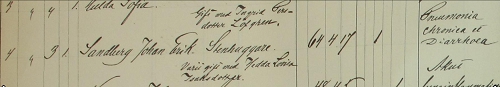 3 4 4 1. Hulda Sofia
Gift med Ingrid Pers-
dotter Löfgren.
Pneumonia
chronica et
Diarrhoea
4 4 3 1. Sandberg Johan Erik. Stenhuggare. 64 4 17 1
Varit gift med Hedda Lovisa
Isaksdotter.
Akut